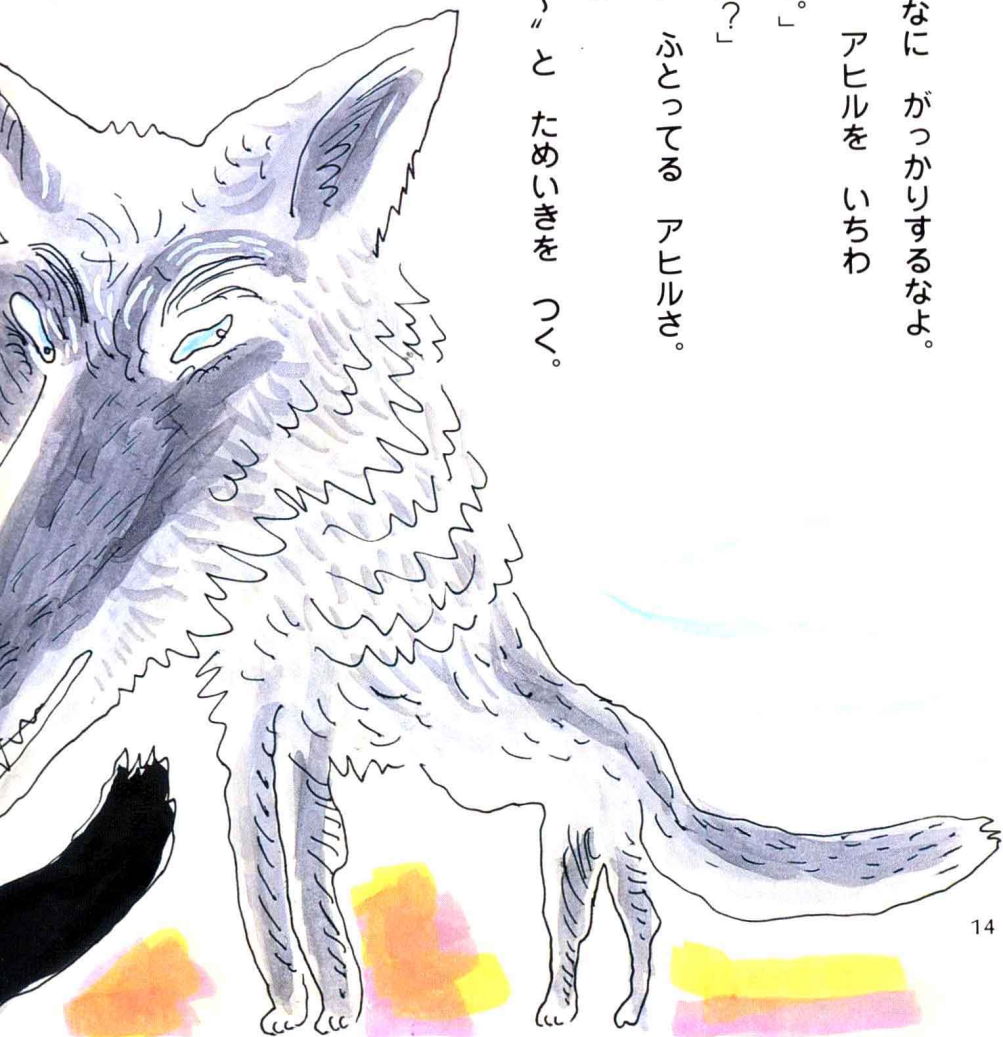 なに　がっかりするなよ。
アヒルを　いちわ
。」
？」
ふとってる　アヒルさ。
〜〃と　ためいきを　つく。
14